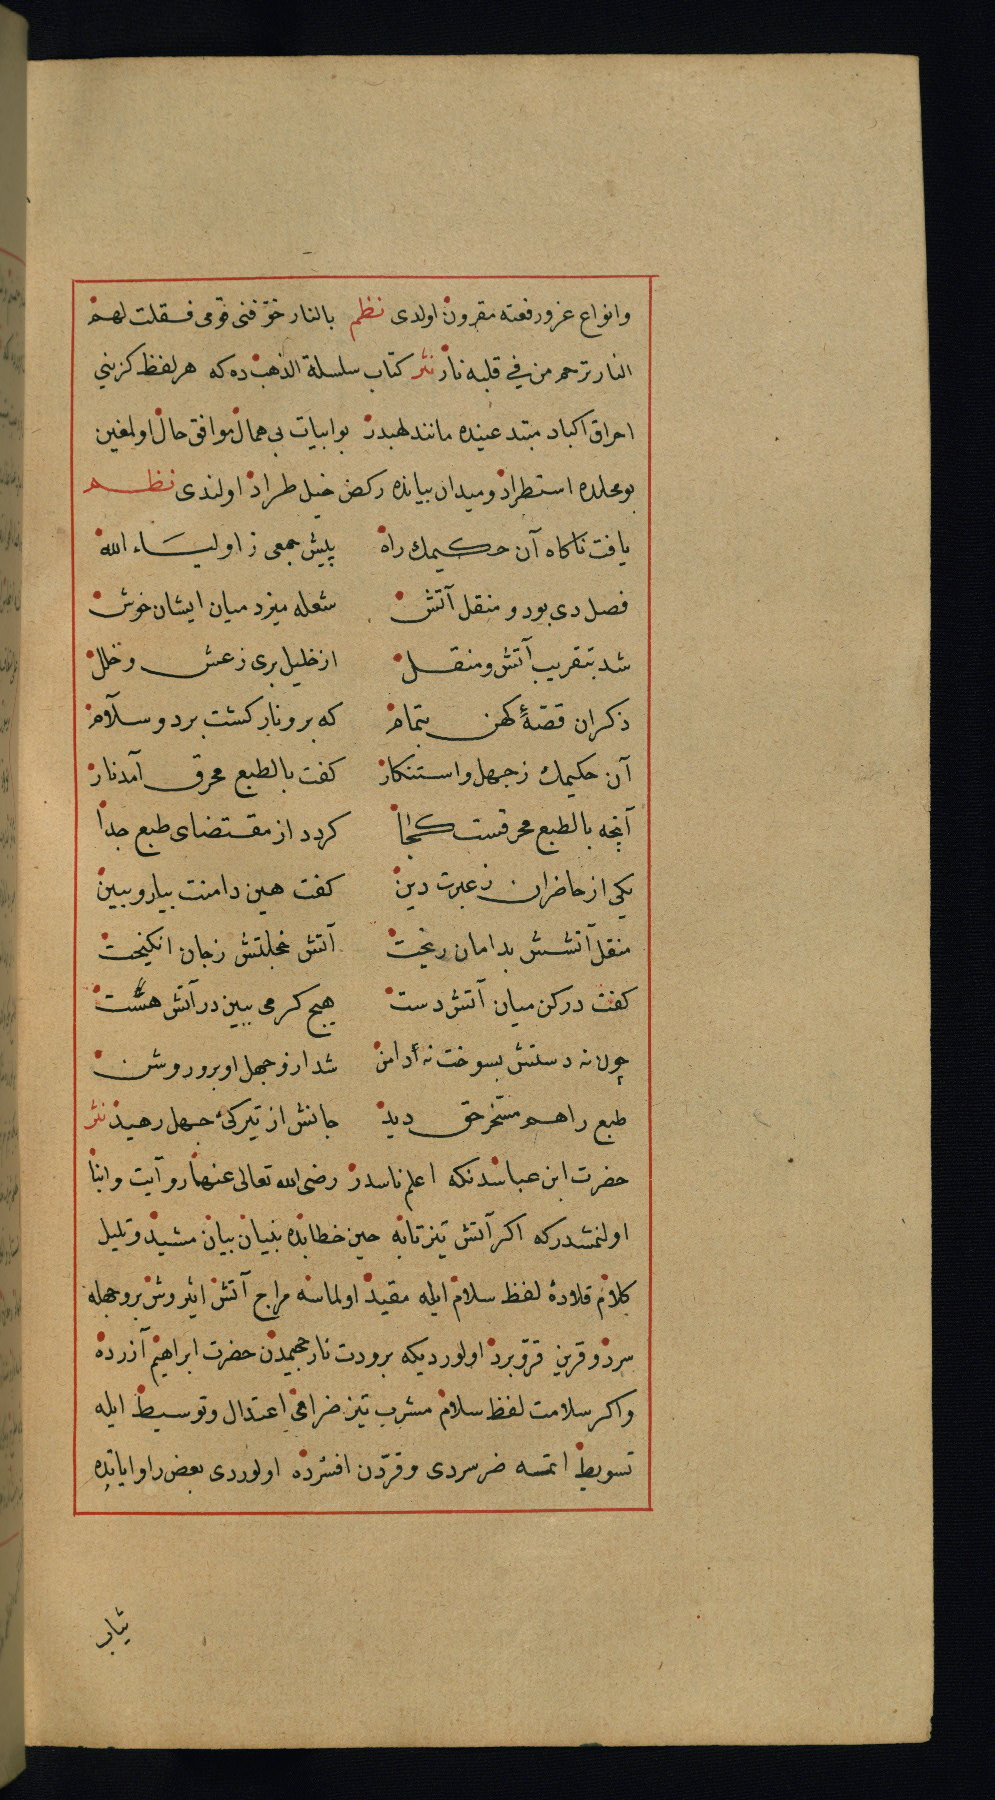 وانواع غرور رفعته مقرون اولدی نظم بالنار خوّفنی قومی فقلت لهم
النار ترحم من فی قلبه نار نثر كتاب سلسلة الذهب ده كه هر لفظ كزینی
احراق اكباد مبتدعینده مانند لهبدر بو ابیات بی همال موافق حال اولمغین
بومحلده استطراد ومیدان بیانده ركض خیل طراد اولندی نظم
یافت ناكاه آن حكیمك راه پیش جمعی ز اولیاء الله
فصل دی بود و منقل آتش شعله میزد میان ایشان خوش
شد بتقریب آتش ومنقل از خلیل بری زغش وخلل
ذكر ان قصّهٔ كهن بتمام كه برو نار كشت برد وسلام
آن حكیمك زجهل واستنكار كفت بالطبع محرق آمد نار
آنچه بالطبع محرقست كجا كردد از مقتضای طبع جدا
یكی از حاضران زغیرت دین كفت هین دامنت بیار وببین
منقل آتشش بدامان ریخت آتش خجلتش زجان انكیخت
كفت در كن میان آتش دست هیچ كرمی ببین در آتش هست
چون نه دستش بسوخت نه دامن شد ازو جهل او برو روشن
طبع راهم مسخر حق دید جانش از تیركیٔ جهل رهید نثر
حضرت ابن عباسدنكه اعلم ناسدر رضی الله تعالی عنهما روآیت وانبا
اولنمشدركه اكر آتش تیزتابه حین خطابده بنیان بیان مشید وتلیل
كلام قلادهٔ لفظ سلام ایله مقید اولماسه مزاج آتش اثیروش بروجهله
سرد وقرین قرّ وبرد اولوردیكه برودت نار جحیمدن حضرت ابراهیم آزرده
واكر سلامت لفظ سلام مشرب تیز ضرامی اعتدال وتوسیط ایله
تسویط اتمسه ضر سردی وقرّدن افسرده اولوردی بعض راوایاتده
ثیاب